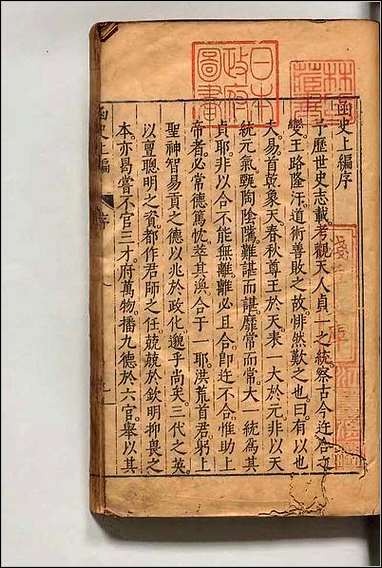 函史上編序
予歷世史志載考觀天人貞一之統察古今迕合之
變王路隆汙道術善敗之故悱然歎之也曰有以也
夫易首乾象天春秋尊王於天表一大於元非以天
統元氣甄陶陰隲難諶而諶靡常而常大一統為其
貞耶非以合不能無離離必且合即迕不合惟助上
帝者必常德篤忱萃其渙合于一耶洪荒首君躬上
聖神智易貢之德以兆於政化邈乎尚矣三代之英
以亶聰明之資都作君師之任兢兢於欽明抑畏之
本亦曷嘗不官三才府萬物播九德於六官舉以其
函史上編
序
日本
政府
圖書